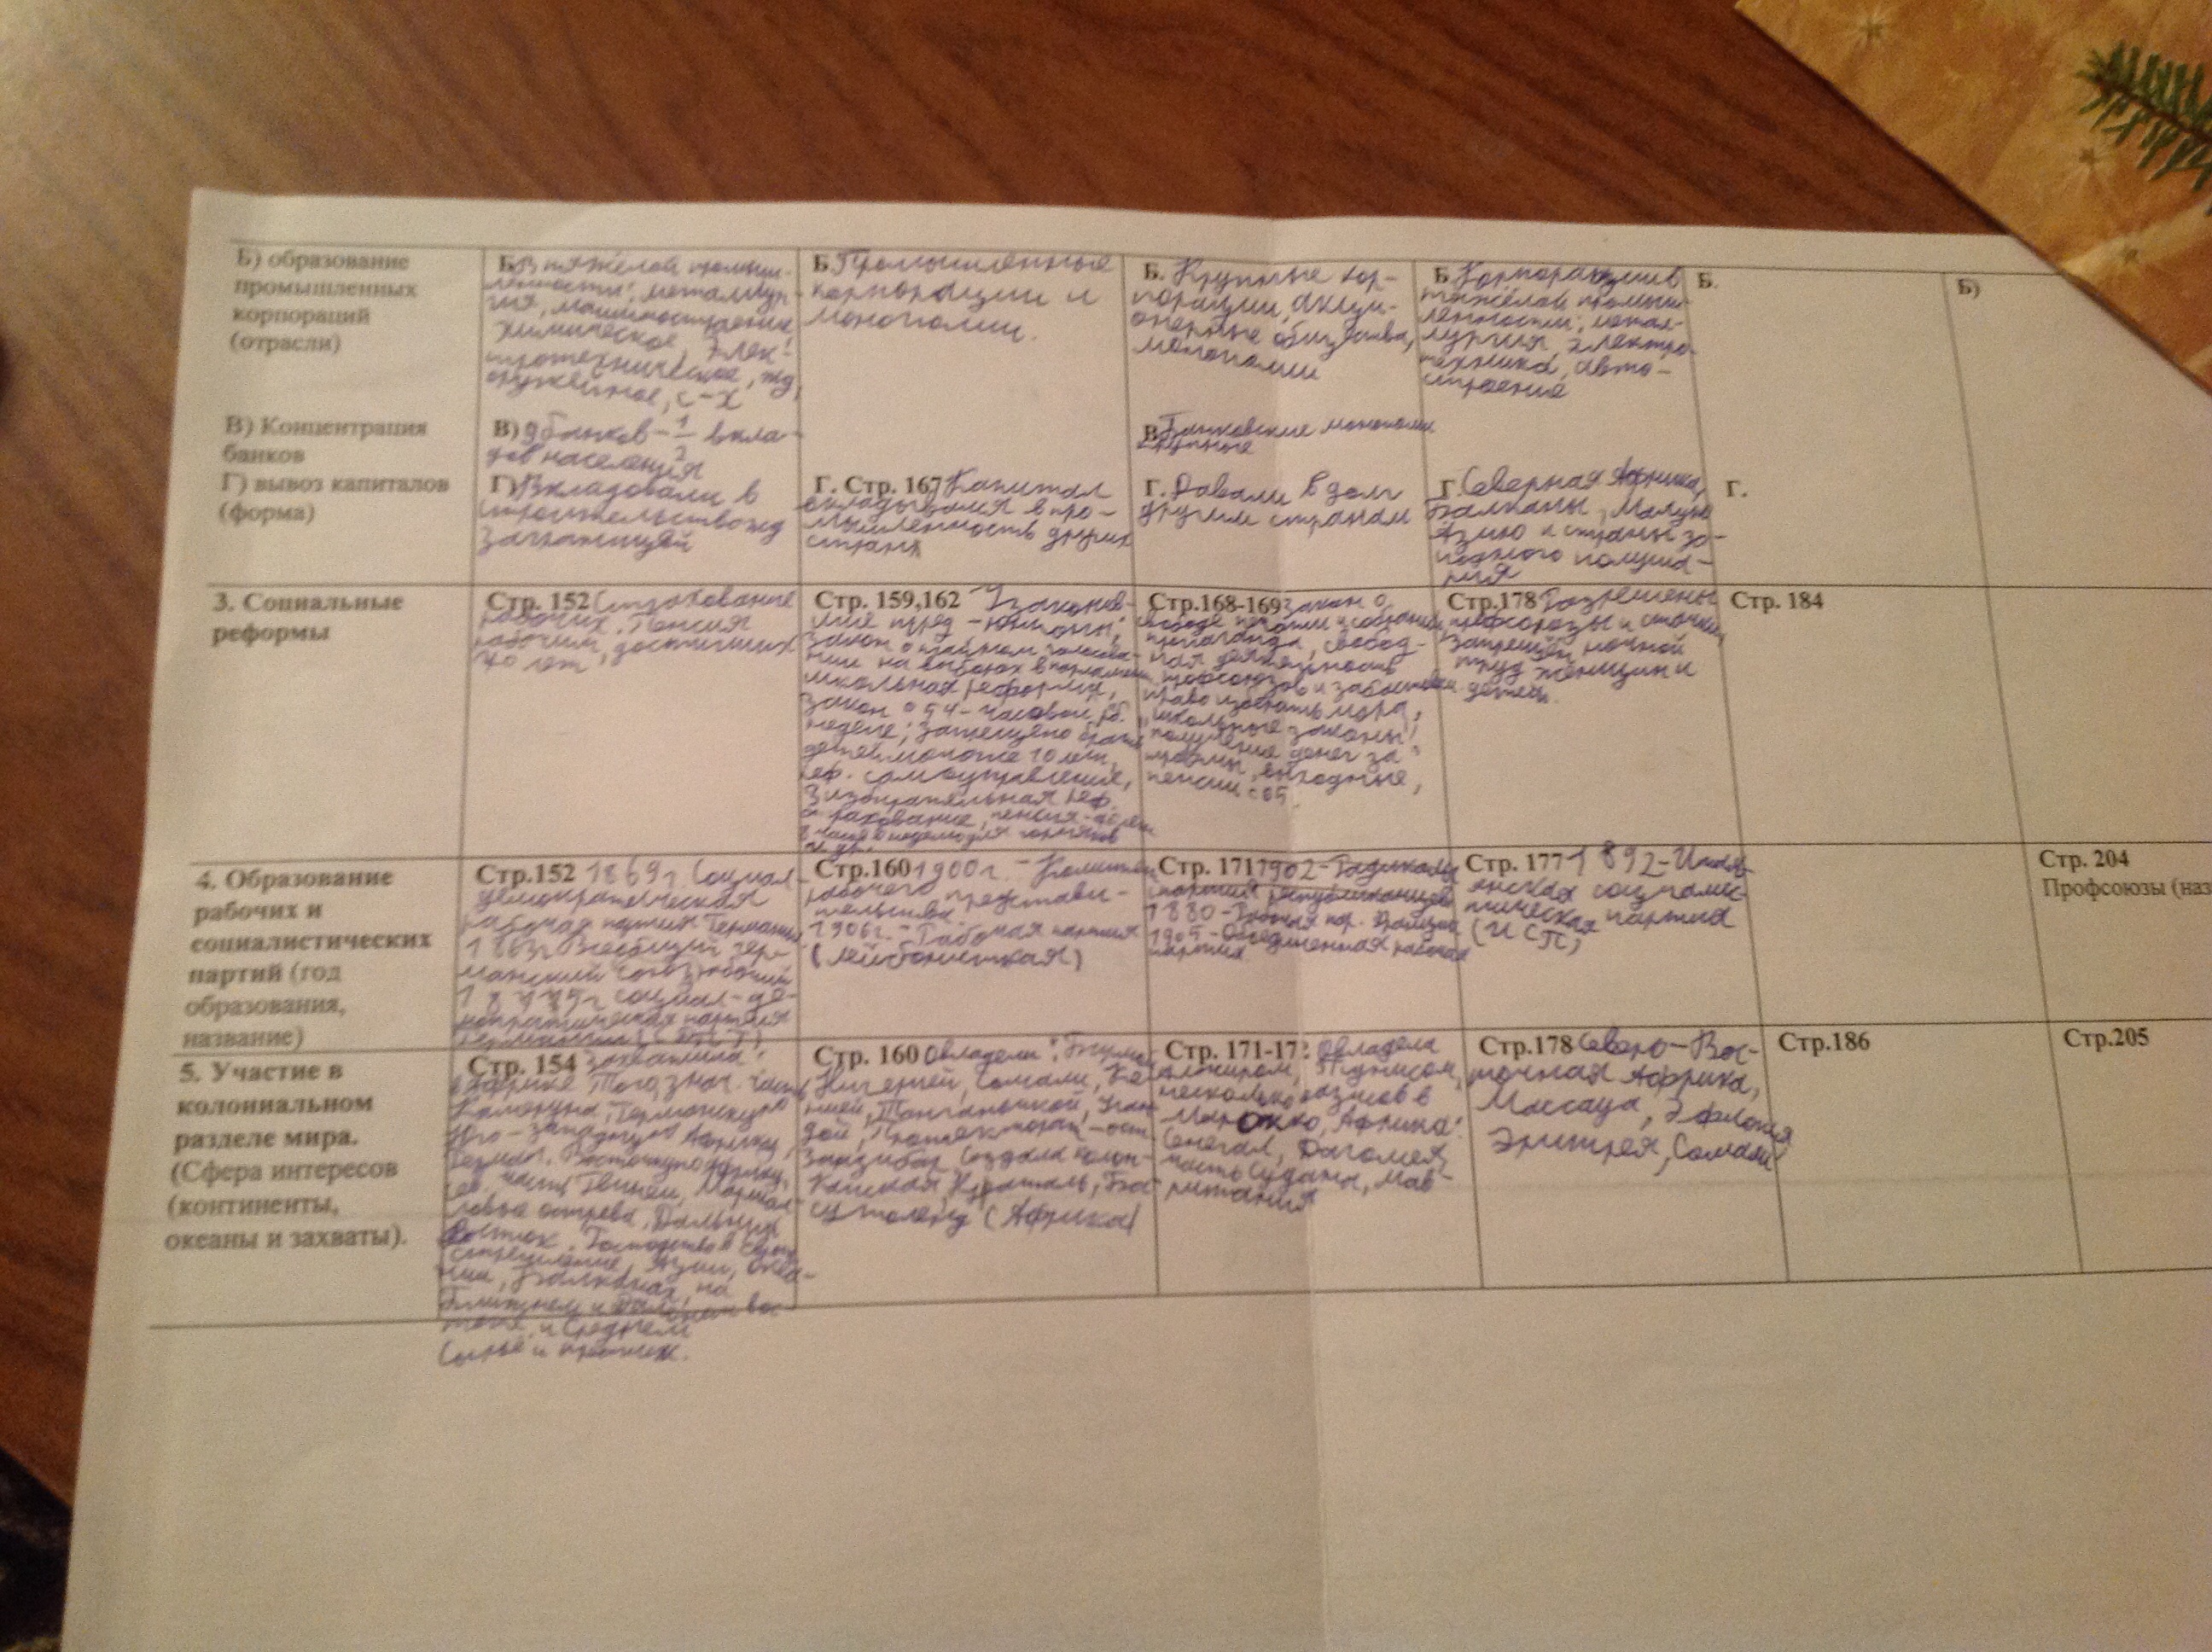 Б) образование
промышленных
корпораций
(отрасли)
В) Концентрация
банков
Г) вывоз капиталов
(форма)
Б. В тяжёлой промыш-
ленности; металлур-
гия, машиностроение,
химическое, элек-
тротехническое, жд,
оружейное, с-х
В) 9 банков - 1/2 вкла-
дов населения
Г) Вкладовали в
строительство жд
заграницей
Б Промышленные
корпорации и
монополии.
Г. Стр. 167 Капитал
вкладывался в про-
мышленность других
стран
Б. Крупные кор-
порации, акци-
онерные общества,
монополии
В Банковские монополии
крупные
Г. Давали в долг
другим странам
Б Корпорации в
тяжёлой промыш-
ленности; метал-
лургия, электро-
техника, авто-
строение
Г. Северная Африка,
Балканы, Малую
Азию и страны за-
падного полуша-
рия
Б.
Г.
Б)
3. Социальные
реформы
Стр. 152 Страхование
рабочих. Пенсия
рабочим, достигших
70 лет
Стр. 159,162 Узаконе-
ние тред-юнионы;
Закон о тайном голосова-
нии на выборах в парламент
школьная реформа,
Закон о 54-часовой рб.
неделе; Запрещено брать
детей моложе 10 лет,
реф. самоуправления,
3 избирательная реф.
страхование, пенсия
Стр.168-169 Закон о
свободе печати и собраний,
пропаганда, свобод-
ная деятельность
профсоюзов и забастовки
право избрать мэра,
школьные законы,
получение денег за
травмы, выходные,
пенсии с 65.
Стр.178 Разрешены
профсоюзы и стачки,
Запрещён ночной
труд женщин и
детей.
Стр. 184
4. Образование
рабочих и
социалистических
партий (год
образования,
название)
Стр.152 1869г Социал-
демократическая
рабочая партия Германии
1863г Всеобщий гер-
манский союз рабочий
социал-де-
мократическая партия
Германии
Стр.160 1900г. - Комитет
рабочего представи-
тельства
1906г. - Рабочая партия
(лейбористская)
Стр. 171 1902 - Радикалы
партия республиканцев
1880 - Рабочая пар. Франции
1905 - Объединённая рабочая
партия
Стр. 177 1892 - Италь-
янская социалис-
тическая партия
(ИСП)
Стр. 204
Профсоюзы (наз
5. Участие в
колониальном
разделе мира.
(Сфера интересов
(континенты,
океаны и захваты).
Стр. 154 Захватила:
в Африке Того, знач. часть
Камеруна, Германскую
Юго-западную Африку,
Герман. Восточную Африку,
сев. часть Гвинеи, Маршал-
ловые острова, Дальний
Восток. Господство в Европе
стремление, Азии, Океа-
нии, Балканах, на
Ближнем и Дальнем вос-
токе и Среднем
Сырьё и
Стр. 160 Овладели: Бирмой
Нигерией, Сомали, Ке-
нией, Танганьикой, Уган-
дой, Протекторат - ост.
Занзибар Создала колон-
Капская, Наталь, Ба-
сутоленд (Африка)
Стр. 171-172 Овладела
Алжиром, Тунисом,
несколько оазисов в
Марокко, Африка:
Сенегал, Дагомея,
часть Судана, Мав-
ритания
Стр.178 Северо-Вос-
точная Африка,
Массауа, Эфиопия
Эритрея, Сомали
Стр.186
Стр.205